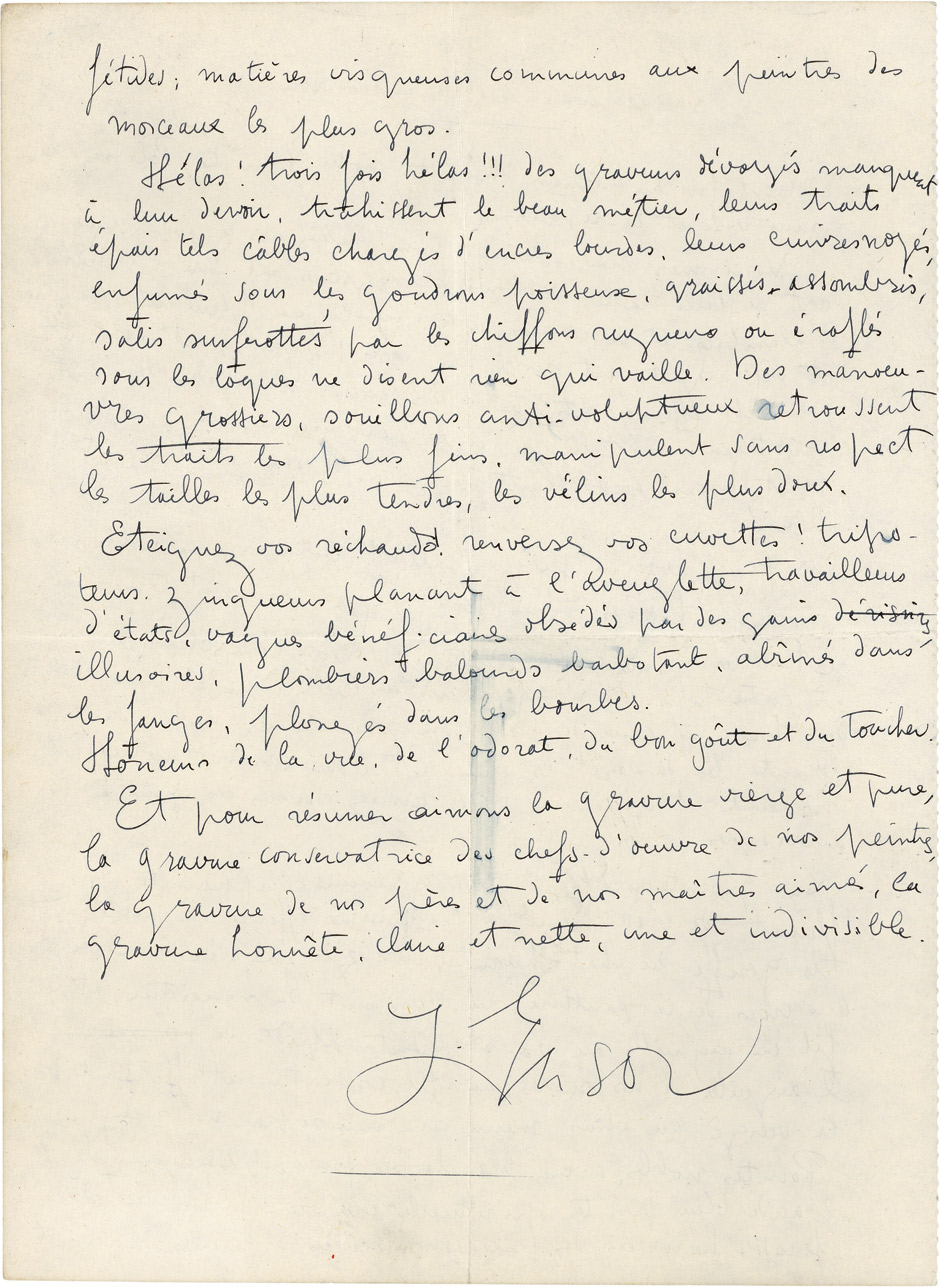 fétides; matières visqueuses communes aux peintres des
morceaux les plus gros.
Hélas! trois fois hélas!!! des graveurs dévoyés manquent
à leur devoir, trahissent le beau métier, leurs traits
épais tels câbles chargés d'encres lourdes, leurs cuivres noyés,
enfumés sous les goudrons poisseux, graissés, assombris,
salis surfrottés par les chiffons rugueux ou éraflés
sous les loques ne disent rien qui vaille. Des manoeu-
vres grossiers, souillons anti-voluptueux retroussent
les traits les plus fins, manipulent sans respect
les tailles les plus tendres, les vélins les plus doux.
Eteignez vos réchauds! renversez vos cuvettes! tripo-
teurs. Zingueurs planant à l'aveuglette, travailleurs
d'états, vagues bénéficiaires obsédés par des gains
illusoires, plombiers balourds barbotant, abîmés dans
les fanges, plongés dans les bourbes.
Horreurs de la vue, de l'odorat, du bon goût et du toucher.
Et pour résumer aimons la gravure vierge et pure,
la gravure conservatrice des chefs-d'oeuvre de nos peintres,
la gravure de nos pères et de nos maîtres aimés, la
gravure honnête, claire et nette, une et indivisible.
J. Ensor